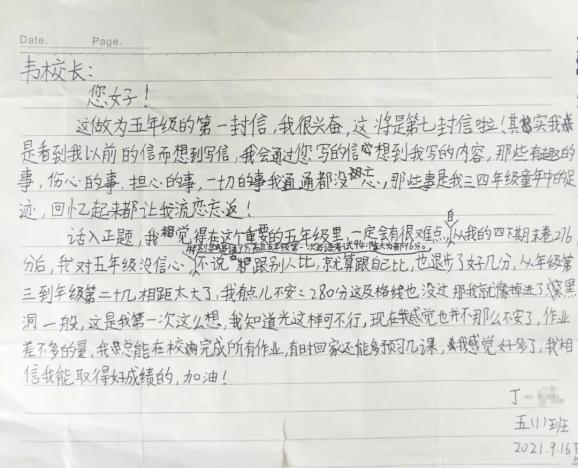 Date. Page.
韦校长：
您好！
这做为五年级的第一封信，我很兴奋，这将是第七封信啦！其实我
是看到我以前的信而想到写信，我会通过您写的信想到我写的内容，那些有趣的
事，伤心的事，担心的事，一切的事我通通都没忘，那些事是我三四年级童年中的足
迹，回忆起来都让我流恋忘返！
话入正题，我相觉得在这个重要的五年级里，一定会有很难点，自从我的四下期末卷276
分后，我对五年级没信心，不说跟别人比，就算跟自己比，也退步了好几分，从年级第
三到年级第二十几，相距太大了，我有点儿不安：280分这及格线也没过，那我就像掉进了深黑
洞一般，这是我第一次这么想，我知道光这样可不行，现在我感觉也并不那么不安了，作业
差不多的量，我总能在校内完成所有作业，有时回家还能多预习几课，我感觉好多了，我相
信我能取得好成绩的，加油！
丁一
五(1)班
2021.9.16